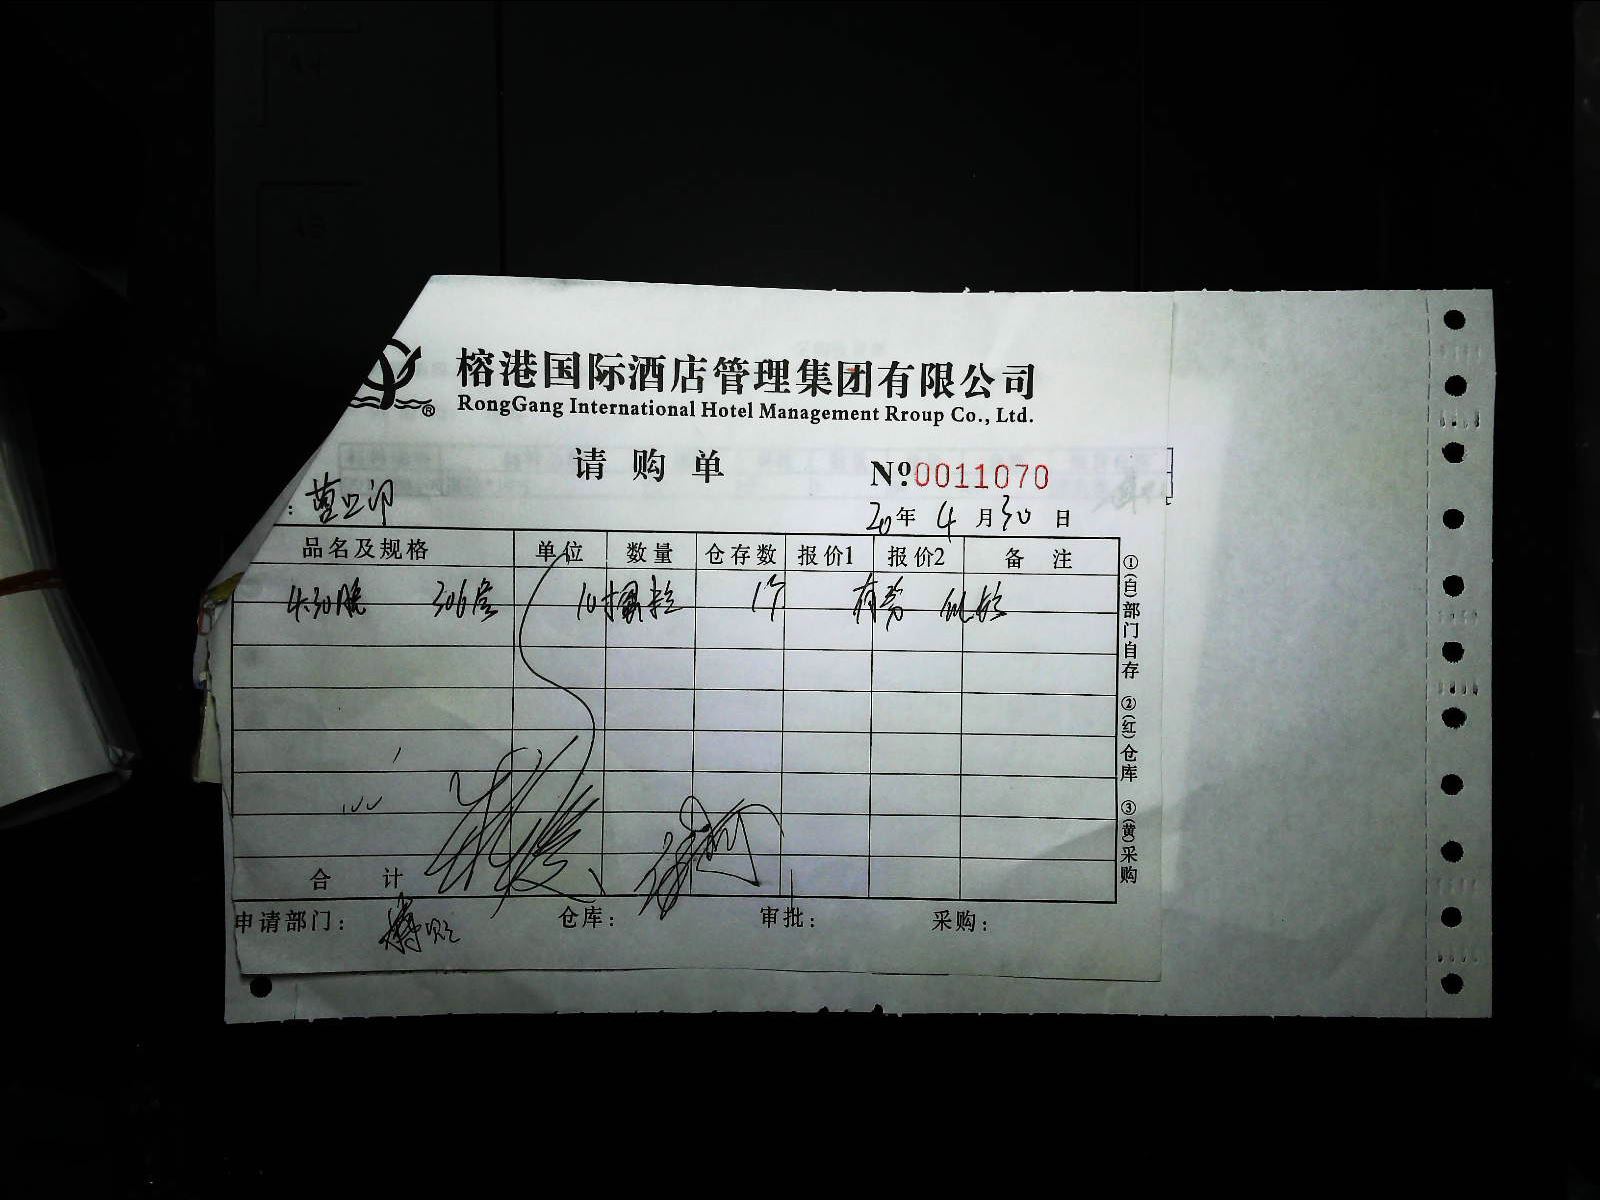 榕港国际酒店管理集团有限公司
®
RongGang International Hotel Management Rroup Co., Ltd.
请购单
№0011070
: 营业部
20年 4月30日
品名及规格 单位 数量 仓存数 报价1 报价2 备注
4.30晚 306房 10
合计
申请部门: 仓库: 审批: 采购:
①(白)部门自存 ②(红)仓库 ③(黄)采购